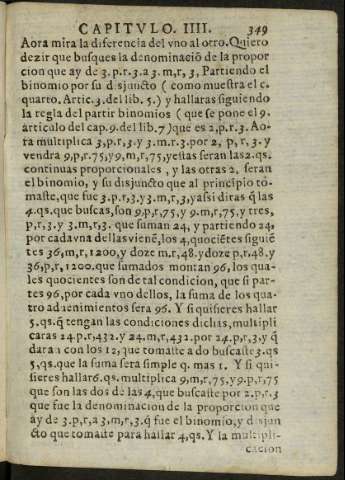 CAPITVLO. IIII. 349
Aora mira la diferencia del vno al otro. Quiero
dezir que busques la denominaciõ de la propor
cion que ay de 3.p.r.3.a 3.m,r,3, Partiendo el
binomio por su disjuncto ( como muestra el c.
quarto. Artic.3.del lib.5.) y hallaras siguiendo
la regla del partir binomios ( que se pone el 9.
articulo del cap.9.del lib.7) que es 2,p.r.3. Ao-
ra multiplica 3,p.r,3.y 3.m.r.3.por 2, p.r,3. y
vendra 9,p,r.75,y 9,m,r,75,y estas seran las 2.qs.
continuas proporcionales , y las otras 2, seran
el binomio, y su disjuncto que al principio to-
maste, que fue 3.p.r,3.y 3.m,r,3,y assi diras q̃ las
4.qs.que buscas, son 9,p,r,75,y 9.m,r,75,y tres,
p,r,3.y 3.m,r,3. que suman 24, y partiendo 24,
por cada vna dellas vienẽ, los 4, quociẽtes siguiẽ
tes 36,m,r,1200,y doze m,r,48.y doze p,r,48.y
36,p,r,1200.que sumados montan 96, los qua-
les quocientes son de tal condicion, que si par-
tes 96,por cada vno dellos, la suma de los qua-
tro aduenimientos sera 96. Y si quisieres hallar
5.qs.q̃ tengan las condiciones dichas, multipli
caras 24.p.r,432.y 24.m,r,432.por 24.p,r,3,y q̃
daran con los 12, que tomaste a do buscaste 3.qs
5,qs.que la suma sera simple q. mas 1. Y si qui-
sieres hallar 6.qs.multiplica 9,m,r,75,y 9.p,r,75
que son las dos de las 4,que buscaste por 2.p.r.3
que fue la denominacion de la proporcion que
ay de 3.p,r,a 3,m,r,3.q̃ fue el binomio, y disjun
cto que tomaste para hallar 4,qs.Y la multipli-
cacion